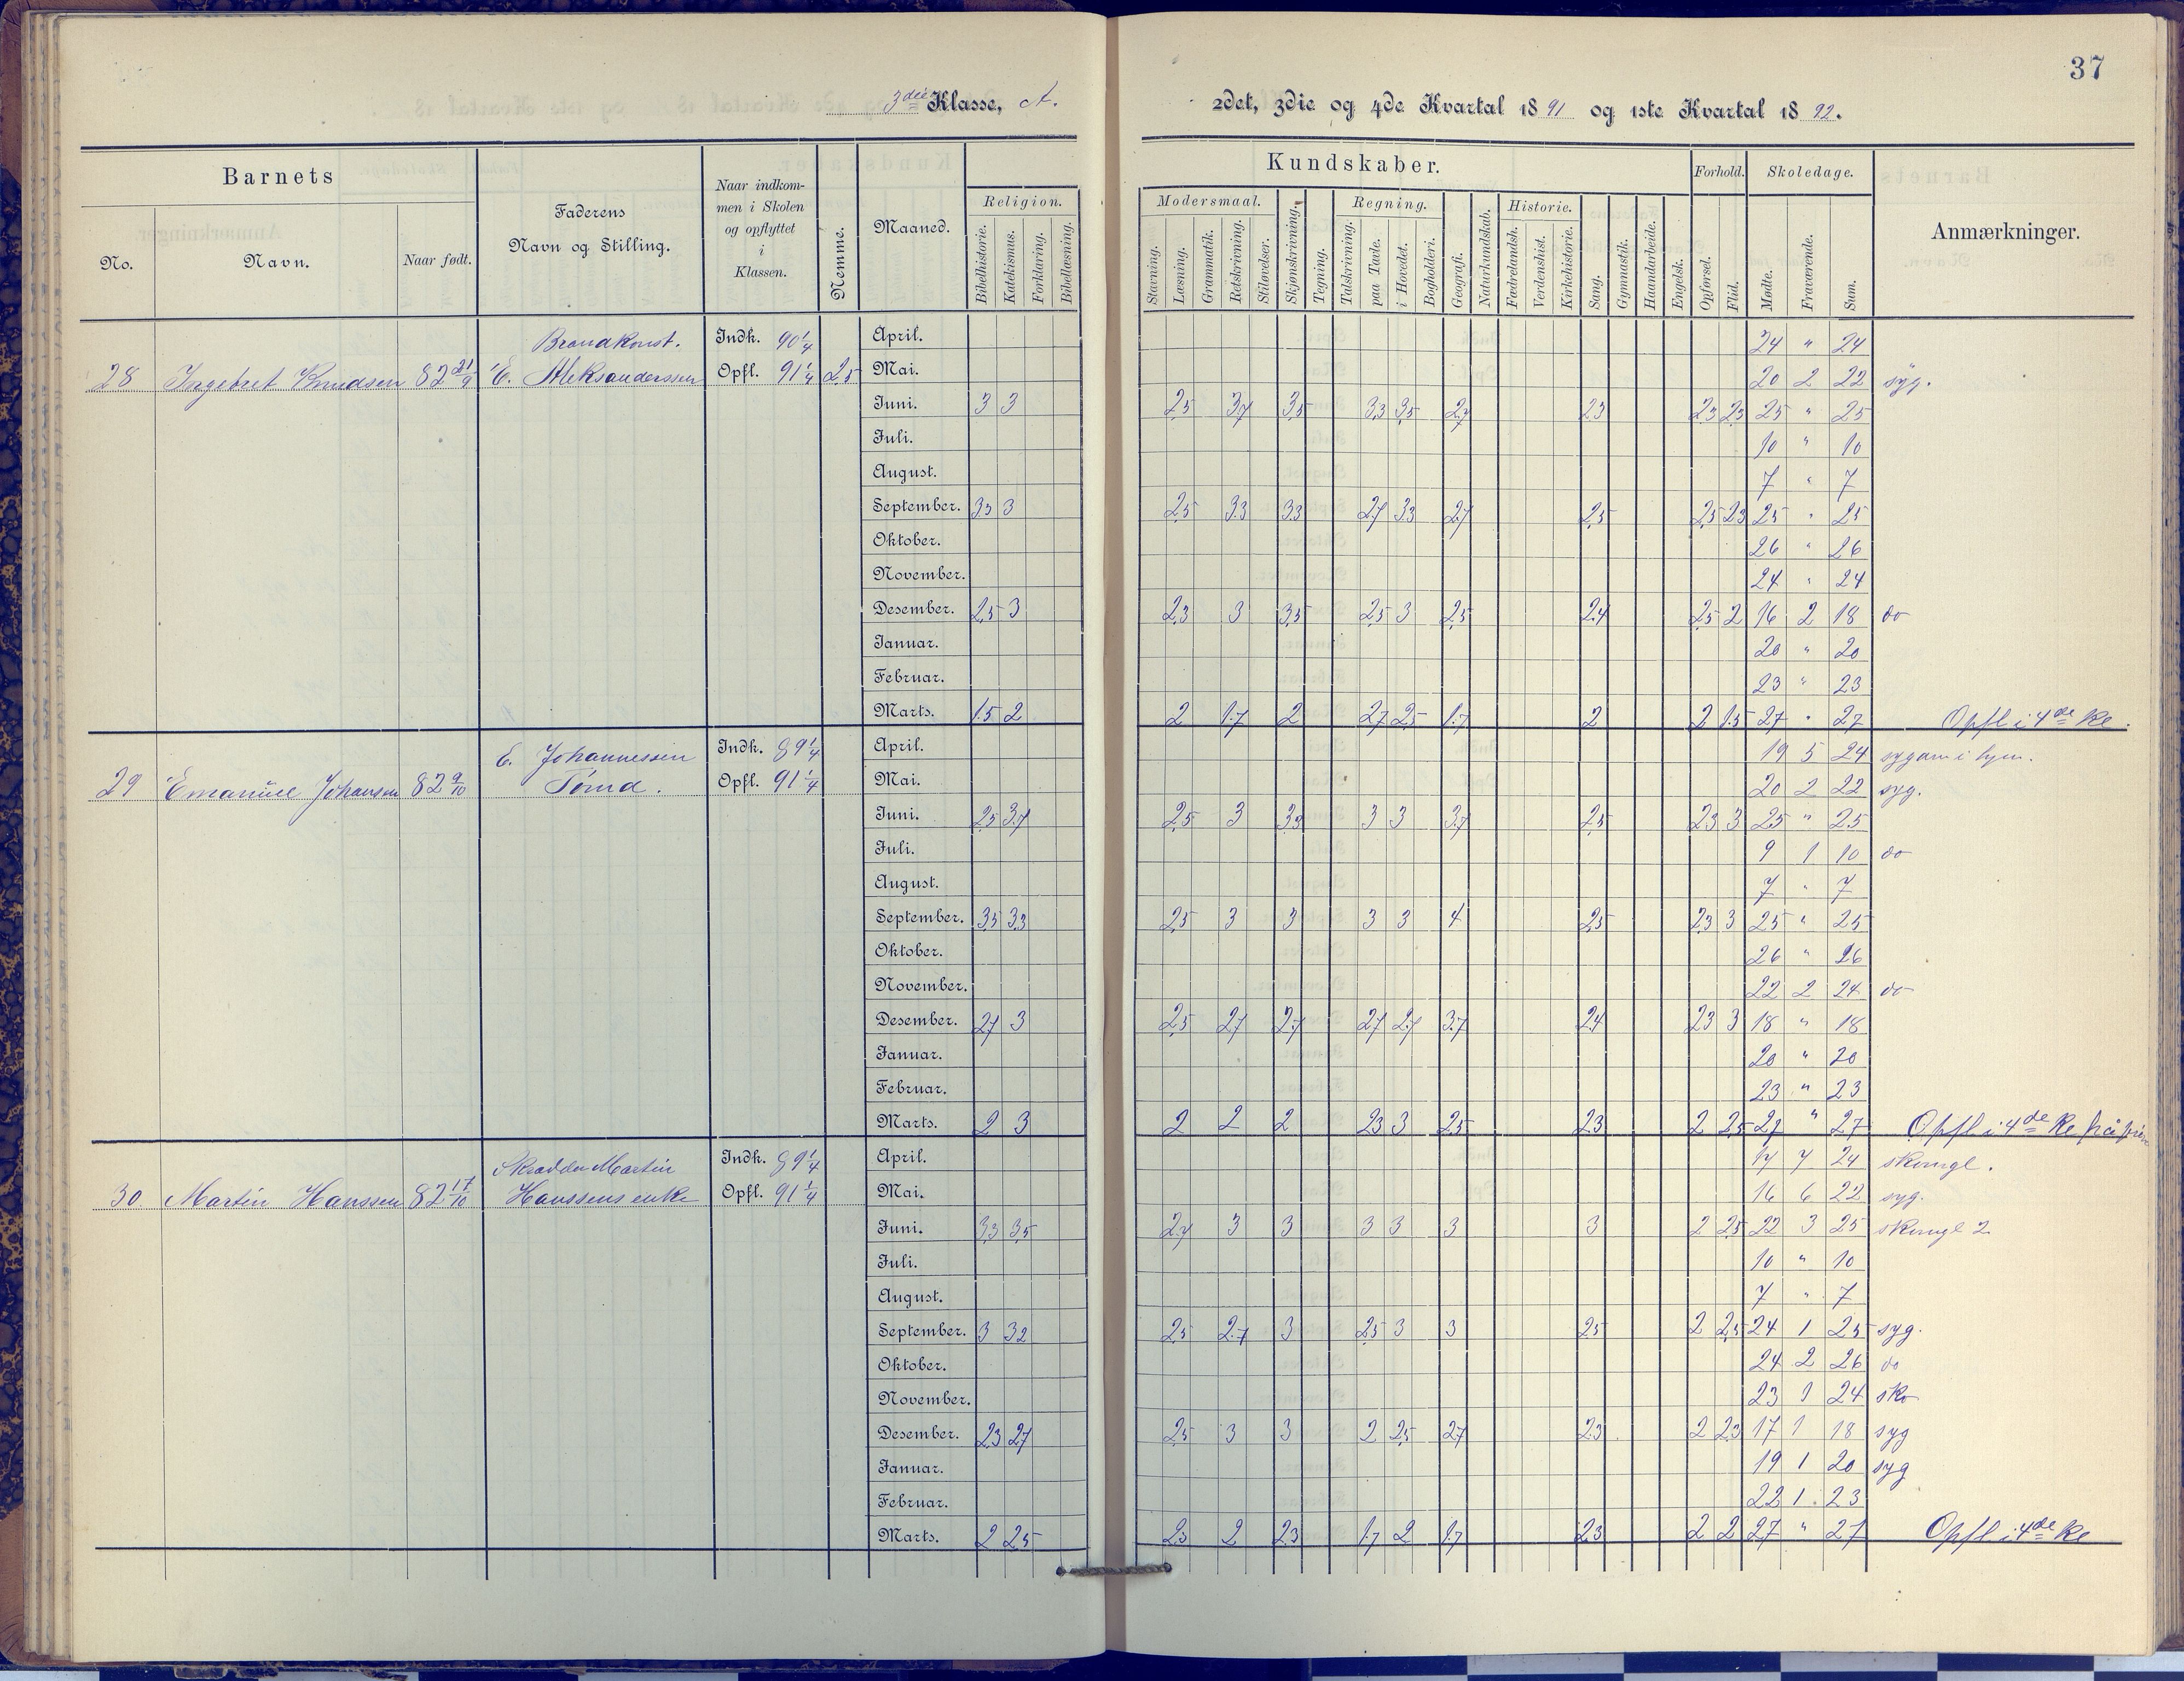 37
3die Klasse, A.
2det, 3die og 4de Kvartal 1891 og 1ste Kvartal 1892.
Barnets
Faderens Navn og Stilling.
Naar indkommen i Skolen og opflyttet i Klassen.
Nemme.
Maaned.
Kundskaber.
Forhold.
Skoledage.
Anmærkninger.
No. Navn. Naar født.
Religion. Modersmaal. Regning. Historie.
Bibelhistorie. Katekismus. Forklaring. Bibellæsning. Stavning. Læsning. Grammatik. Retskrivning. Stiløvelser. Skjønskrivning. Tegning. Talskrivning. paa Tavle. i Hovedet. Bogholderi. Geografi. Naturkundskab. Fædrelandsh. Verdenshist. Kirkehistorie. Sang. Gymnastik. Haandarbeide. Engelsk. Opførsel. Flid. Mødte. Fraværende. Sum.
Brandkonst. Indk. 90 1/4 April. 24 " 24
28 Ingebret Knudsen 82 21/9 E. Aleksanderssen Opfl. 91 1/4 2,5 Mai. 20 2 22 syg.
Juni. 3 3 2,5 3,7 3,5 3,3 3,5 2,7 2,3 2,3 2,3 25 " 25
Juli. 10 " 10
August. 7 " 7
September. 3,3 3 2,5 3,3 3,3 2,7 3,3 2,7 2,5 2,5 2,3 25 " 25
Oktober. 26 " 26
November. 24 " 24
Desember. 2,5 3 2,3 3 3,5 2,5 3 2,5 2,4 2,5 2 16 2 18 do
Januar. 20 " 20
Februar. 23 " 23
Marts. 1,5 2 2 1,7 2 2,7 2,5 1,7 2 2 1,5 27 " 27 Opfl i 4de Kl.
E. Johannessen Indk. 89 1/4 April. 19 5 24
29 Emanuel Johansen 82 9/10 Opfl. 91 1/4 Mai. 20 2 22 syg.
Juni. 2,5 3,7 2,5 3 3,3 3 3 3,7 2,5 2,3 3 25 " 25
Juli. 9 1 10 do
August. 7 " 7
September. 3,5 3,3 2,5 3 3 3 3 4 2,5 2,3 3 25 " 25
Oktober. 26 " 26
November. 22 2 24 do
Desember. 2,7 3 2,5 2,7 2,7 2,7 2,7 3,7 2,4 2,3 3 18 " 18
Januar. 20 " 20
Februar. 23 " 23
Marts. 2 3 2 2 2 2,3 3 2,5 2,3 2 2,5 27 " 27 Opfl i 4de Kl på prøve
Skrædder Martin Indk. 89 1/4 April. 17 7 24 skomgl.
30. Martin Hanssen 82 17/10 Hanssens enke Opfl. 91 1/4 Mai. 16 6 22 syg.
Juni. 3,3 3,5 2,7 3 3 3 3 3 3 2 2,5 22 3 25 skomgl 2
Juli. 10 " 10
August. 7 " 7
September. 3 3,2 2,5 2,7 3 2,5 3 3 2,5 2 2,5 24 1 25 syg.
Oktober. 24 2 26 do
November. 23 1 24 sko
Desember. 2,3 2,7 2,5 3 3 2 2,5 2,7 2,3 2 2,3 17 1 18 syg
Januar. 19 1 20 syg
Februar. 22 1 23
Marts. 2 2,5 2,3 2 2,3 1,7 2 1,7 2,3 2 2 27 " 27 Opfl i 4de Kl